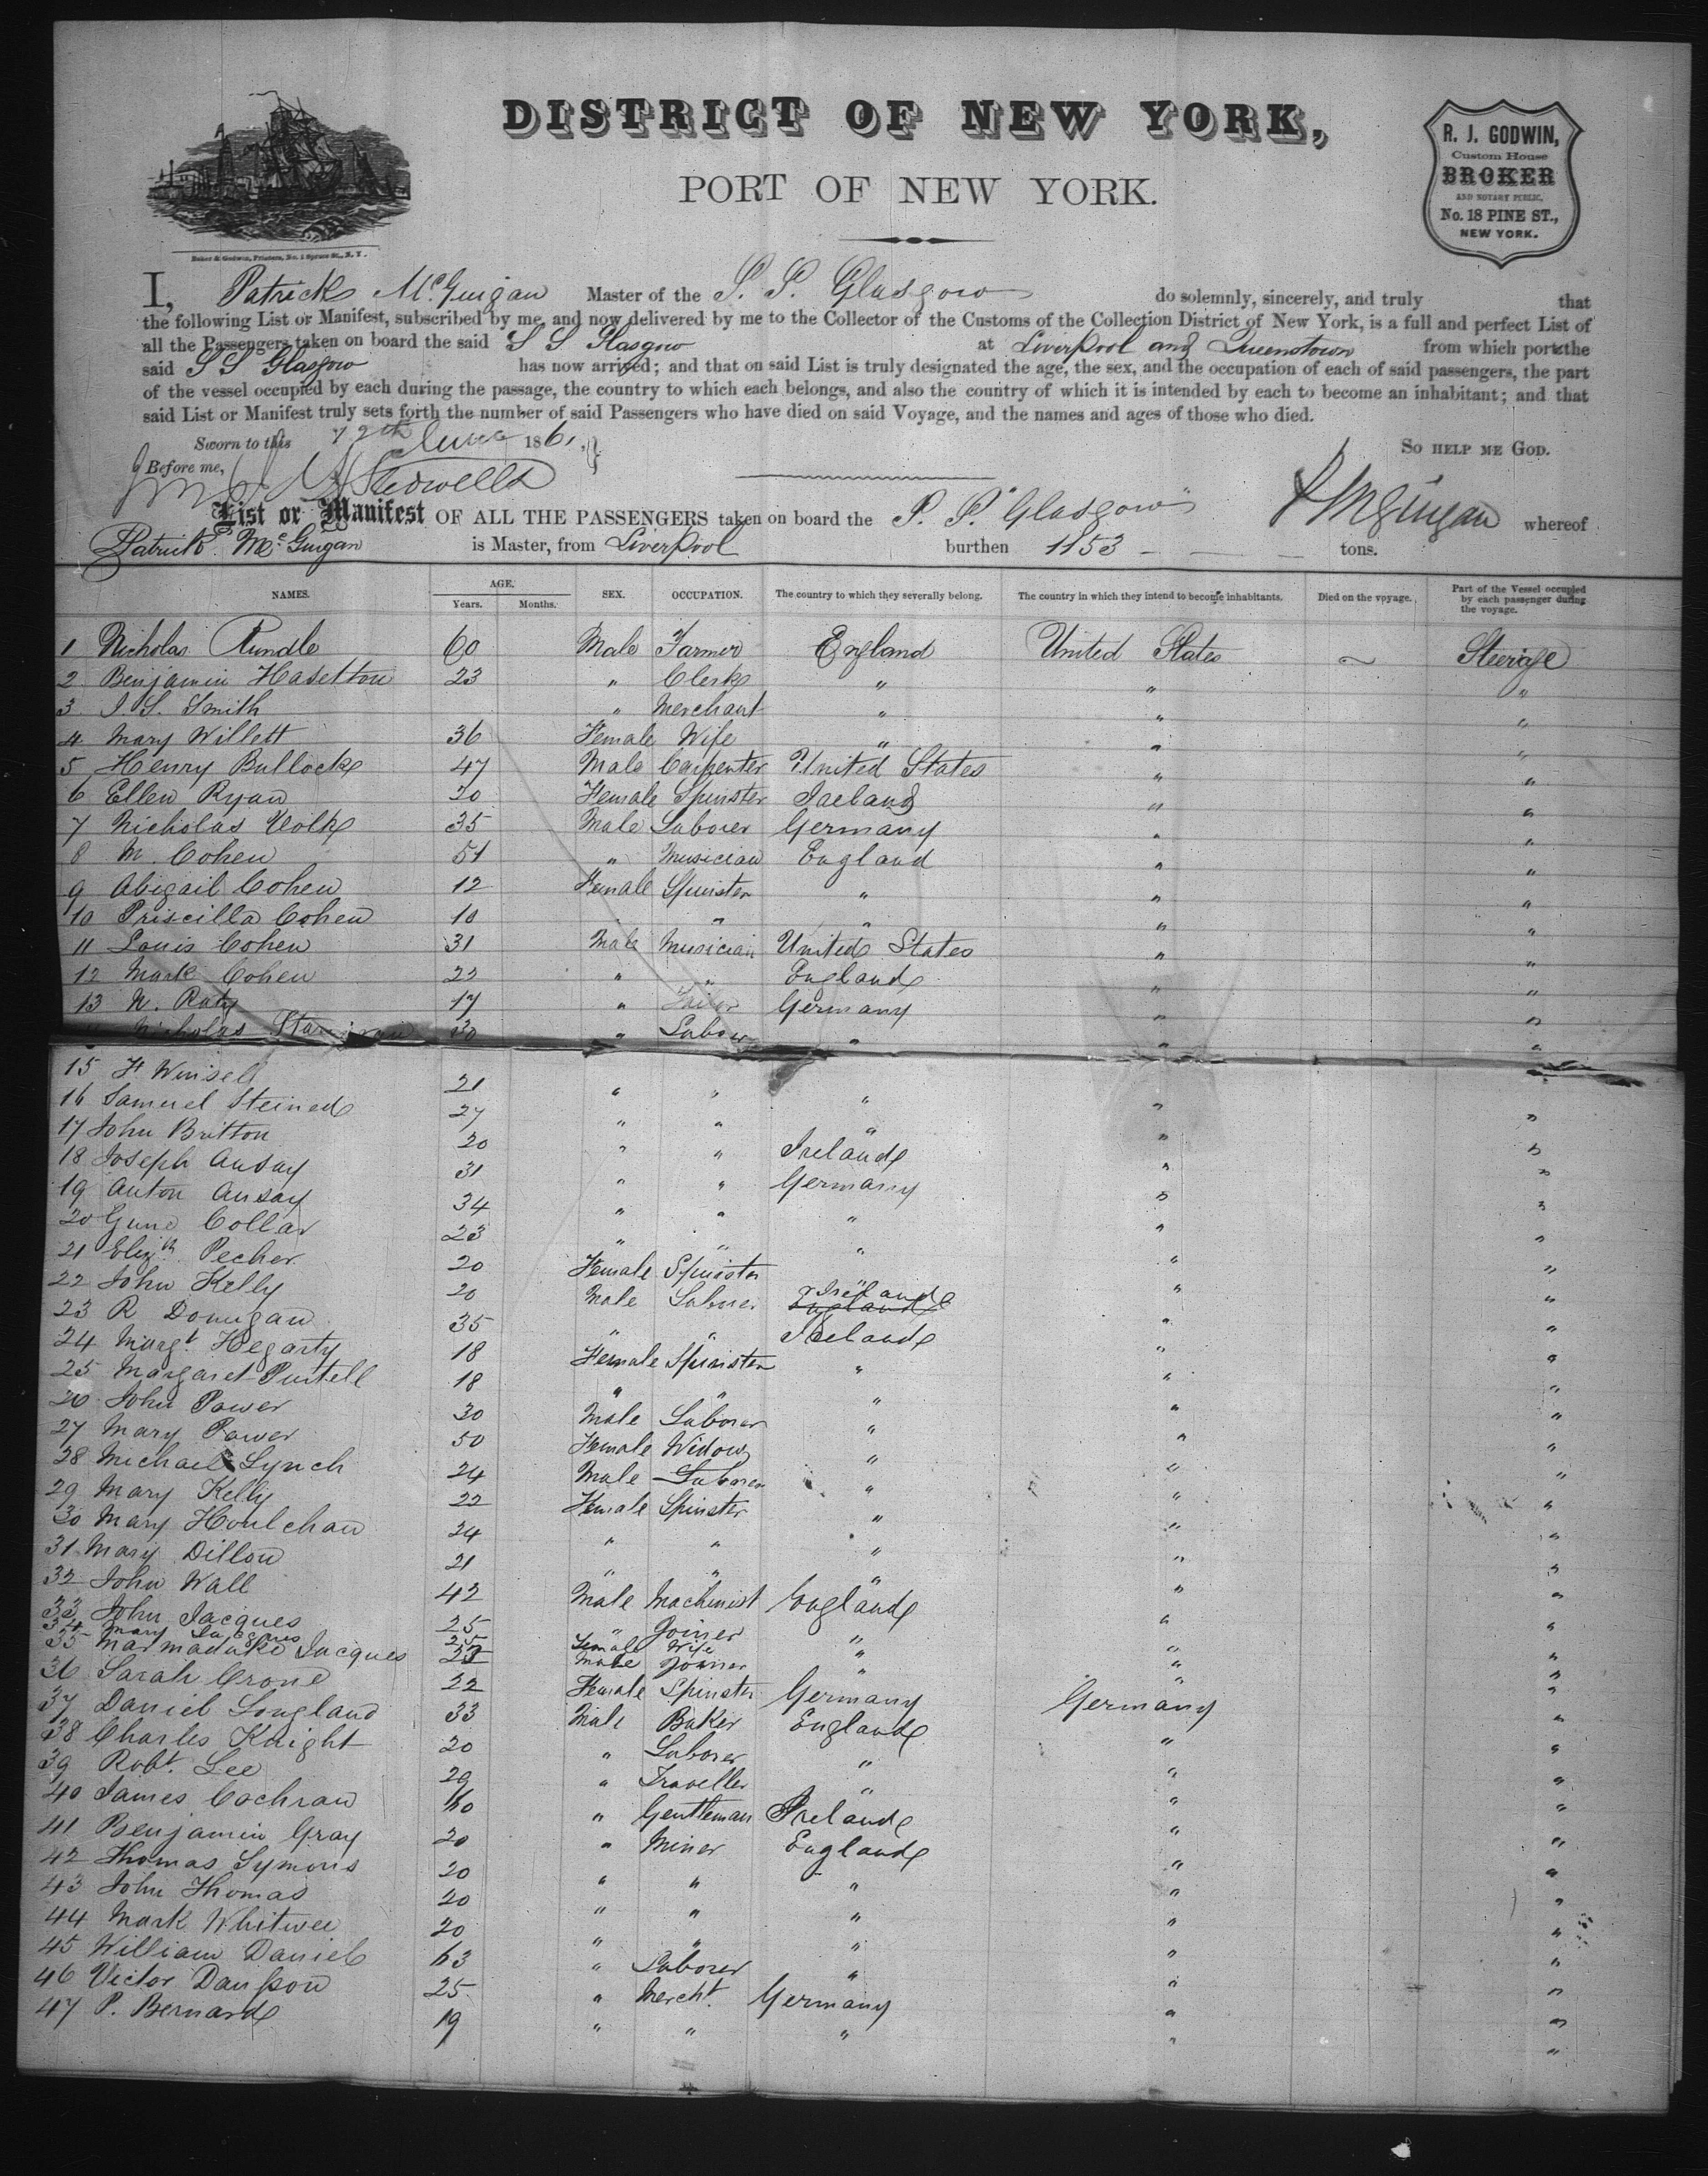 DISTRICT OF NEW YORK,
PORT OF NEW YORK.
R. J. GODWIN,
Custom House
BROKER
AND NOTARY PUBLIC,
No. 18 PINE ST.,
NEW YORK.
Baker & Godwin, Printers, No. 1 Spruce St., N. Y.
I, Patrick McGuigan Master of the S. S. Glasgow do solemnly, sincerely, and truly that
the following List or Manifest, subscribed by me, and now delivered by me to the Collector of the Customs of the Collection District of New York, is a full and perfect List of
all the Passengers taken on board the said S S Glasgow at Liverpool and Queenstown from which port the
said S S Glasgow has now arrived; and that on said List is truly designated the age, the sex, and the occupation of each of said passengers, the part
of the vessel occupied by each during the passage, the country to which each belongs, and also the country of which it is intended by each to become an inhabitant; and that
said List or Manifest truly sets forth the number of said Passengers who have died on said Voyage, and the names and ages of those who died.
Sworn to this June 186
SO HELP ME GOD.
Before me,
List or Manifest OF ALL THE PASSENGERS taken on board the S. S. "Glasgow" P McGuigan whereof
Patrick McGuigan is Master, from Liverpool burthen 1153 tons.
NAMES. AGE. Years. Months. SEX. OCCUPATION. The country to which they severally belong. The country in which they intend to become inhabitants. Died on the voyage. Part of the Vessel occupied by each passenger during the voyage.
1 Nicholas Rundle 60 Male Farmer England United States ~ Steerage
2 Benjamin Haselton 23 " Clerk " " "
3 J. S. Smith " Merchant " " "
4 Mary Willett 36 Female Wife " " "
5 Henry Bullock 47 Male Carpenter United States " "
6 Ellen Ryan 20 Female Spinster Ireland " "
7 Nicholas Volk 35 Male Laborer Germany " "
8 M. Cohen 51 " Musician England " "
9 Abigail Cohen 12 Female Spinster " " "
10 Priscilla Cohen 10 " " " " "
11 Louis Cohen 31 Male Musician United States " "
12 Mark Cohen 22 " " England " "
13 N. 17 " Germany " "
Nicholas 30 " Labour " " "
15 H Winsell 21 " " " " "
16 Samuel Steined 27 " " " " "
17 John Britton 20 " " Ireland " "
18 Joseph Ausay 31 " " Germany " "
19 Anton Ausay 34 " " " " "
20 Collar 23 " " " " "
21 Elizth Pecher 20 Female Spinster " "
22 John Kelly 20 Male Laborer Ireland " "
23 R Donegan 35 " " Ireland " "
24 Margt Hegarty 18 Female Spinster " " "
25 Margaret Purtell 18 " " " " "
26 John Power 30 Male Laborer " " "
27 Mary Power 50 Female Widow " " "
28 Michael Lynch 24 Male Laborer " " "
29 Mary Kelly 22 Female Spinster " " "
30 Mary Houlehan 24 " " " " "
31 Mary Dillon 21 " " " " "
32 John Wall 42 Male Machinist England " "
33 John Jacques 25 " Joiner " " "
34 Mary Jacques 25 Female Wife " " "
35 Marmaduke Jacques Male Joiner " " "
36 Sarah Crone 22 Female Spinster Germany Germany "
37 Daniel Longland 33 Male Baker England " "
38 Charles Knight 20 " Laborer " " "
39 Robt. Lee 29 " Traveller " " "
40 James Cochran 60 " Gentleman Ireland " "
41 Benjamin Gray 20 " Miner England " "
42 Thomas Symons 20 " " " " "
43 John Thomas 20 " " " " "
44 Mark Whitwee 20 " " " " "
45 William Daniel 63 " Laborer " " "
46 Victor 25 " Mercht. Germany " "
47 P. Bernard 19 " " " " "